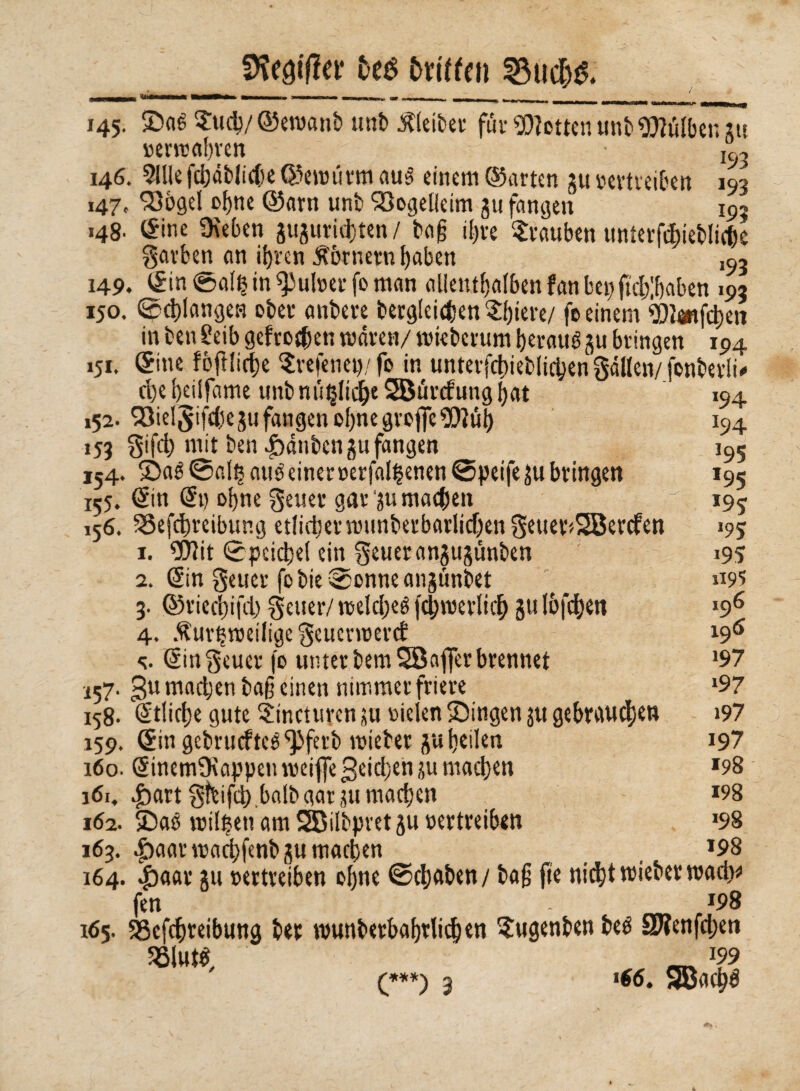 Register des dritten Buchs.
145. Das Tuch/Gewand und Kleider für Motten und Mülben zu
verwahren 193
146. Alle schädliche Gewürm aus einem Garten zu vertreiben 193
147. Vögel ohne Garn und Vogelleim zu fangen 193
148. Eine Reben zuzurichten/ daß ihre Trauben unterschiedliche
Farben an ihren Körnern haben 193
149. Ein Saltz in Pulver so man allenthalben kan bey sich haben 193
150. Schlangen oder andere dergleichen Thiere/ so einem Menschen
in den Leib gekrochen wären/ wiederum heraus zu bringen 194
151. Eine köstliche Treseney/ so in unterschiedlichen Fällen/ sonderli-
che heilsame und nützliche Würckung hat 194
152. Viel Fische zu fangen ohne grosse Müh 194
153 Fisch mit den Händen zu fangen 195
154. Das Saltz aus einer versaltzenen Speise zu bringen 195
155. Ein Ey ohne Feuer gar zu machen 195
156. Beschreibung etlicher wunderbarlichen Feuer-Wercken 195
1. Mit Speichel ein Feuer anzuzünden 195
2. Ein Feuer so die Sonne anzündet 195
3. Griechisch Feuer/ welches schwerlich zu löschen 196
4. Kurtzweilige Feuerwerck 196
5. Ein Feuer so unter dem Wasser brennet 197
157. Zu machen daß einen nimmer friere 197
158. Etliche gute Tincturen zu vielen Dingen zu gebrauchen 197
159. Ein gedrucktes Pferd wieder zu heilen 197
160. Einem Rappen weisse Zeichen zu machen 198
161. Hart Fleisch bald gar zu machen 198
162. Das wiltzen am Wildpret zu vertreiben 198
163. Haar wachsend zu machen 198
164. Haar zu vertreiben ohne Schaden/ daß sie nicht wieder wach-
sen 198
165. Beschreibung der wunderbahrlichen Tugenden des Menschen
Bluts, 199
(***) 3 166. Wachs